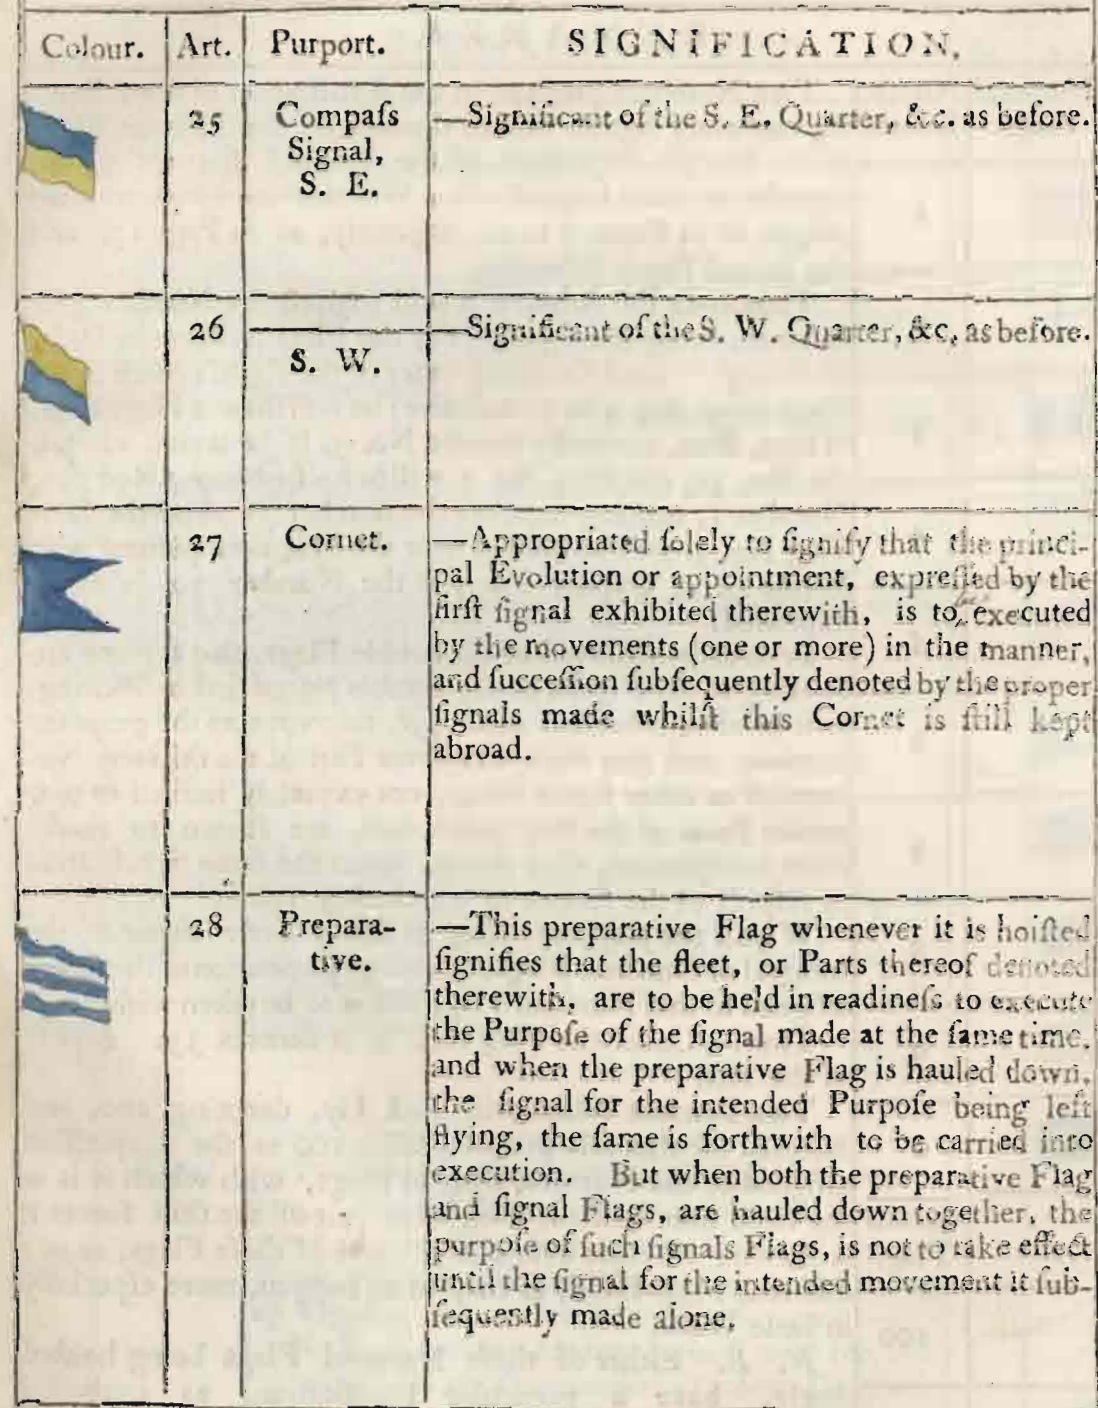 Colour. Art. Purport. SIGNIFICATION.
25 Compaſs —Significant of the S. E. Quarter, &c. as before.
Signal,
S. E.
26 ——— —Significant of the S. W. Quarter, &c. as before.
S. W.
27 Cornet. —Appropriated ſolely to ſignify that the princi-
pal Evolution or appointment, expreſſed by the
firſt ſignal exhibited therewith, is to be executed
by the movements (one or more) in the manner,
and ſucceſſion ſubſequently denoted by the proper
ſignals made whilſt this Cornet is ſtill kept
abroad.
28 Prepara- —This preparative Flag whenever it is hoiſted
tive. ſignifies that the fleet, or Parts thereof denoted
therewith, are to be held in readineſs to execute
the Purpoſe of the ſignal made at the ſame time,
and when the preparative Flag is hauled down,
the ſignal for the intended Purpoſe being left
flying, the ſame is forthwith to be carried into
execution. But when both the preparative Flag
and ſignal Flags, are hauled down together, the
purpoſe of ſuch ſignals Flags, is not to take effect
until the ſignal for the intended movement it ſub-
ſequently made alone.